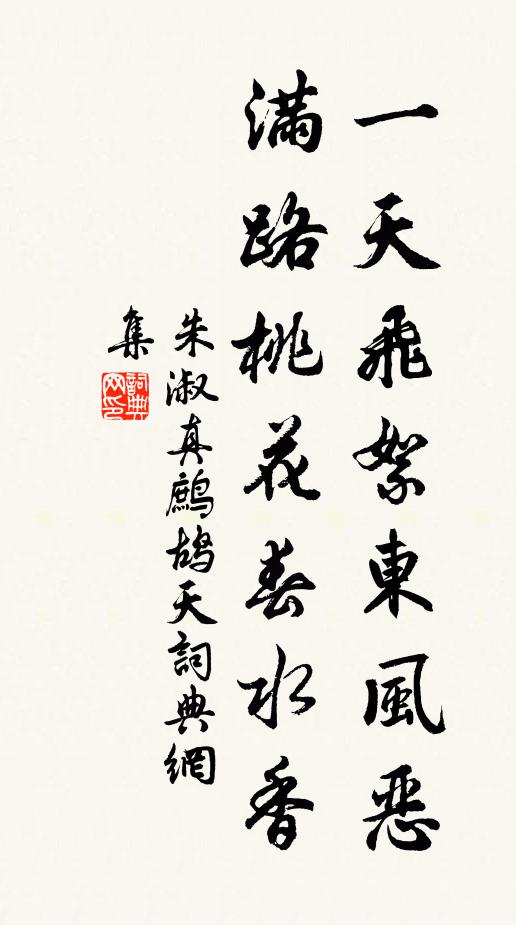 一天飛絮東風惡
滿路桃花春水香
朱淑真鷓鴣天詞典網
集
詞典
网印